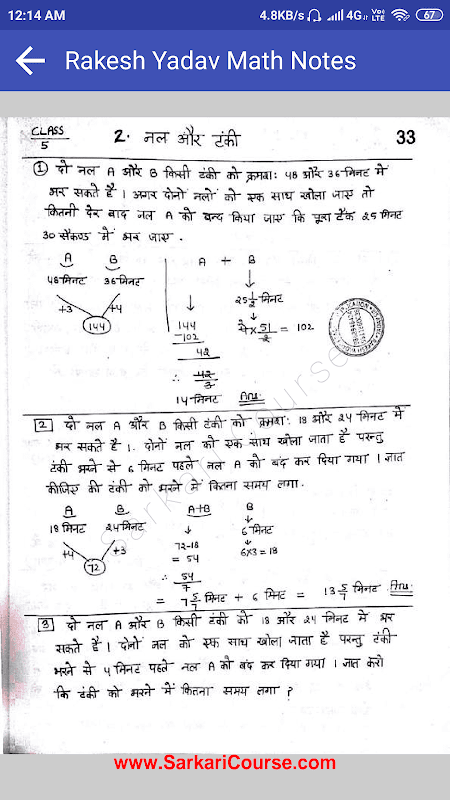 12:14 AM 4.8KB/s 4G VoLTE 67
Rakesh Yadav Math Notes
CLASS 5 2. नल और टंकी 33
1 दो नल A और B किसी टंकी को क्रमशः 48 और 36 मिनट में
भर सकते है । अगर दोनों नलों को एक साथ खोला जाए तो
कितनी देर बाद नल A को बन्द किया जाए कि पूरा टैंक 25 मिनट
30 सैकण्ड में भर जाए .
A B A + B
48 मिनट 36 मिनट ↓ ↓
+3 +4 25 1/2 मिनट
144 144 2/4 × 51/2 = 102
-102
42
∴ 42/3
14 मिनट Ans:
2 दो नल A और B किसी टंकी को क्रमशः 18 और 24 मिनट में
भर सकते है । दोनों नल को एक साथ खोला जाता है परन्तु
टंकी भरने से 6 मिनट पहले नल A को बंद कर दिया गया । ज्ञात
कीजिए की टंकी को भरने में कितना समय लगा .
A B A+B B
18 मिनट 24 मिनट ↓ ↓
+4 +3 72-18 6 मिनट
72 = 54 6×3 = 18
∴ 54/7
= 7 5/7 मिनट + 6 मिनट = 13 5/7 मिनट Ans:
3 दो नल A और B किसी टंकी को 18 और 24 मिनट में भर
सकते है । दोनों नल को एक साथ खोला जाता है परन्तु टंकी
भरने से 4 मिनट पहले नल A को बंद कर दिया गया । ज्ञात करो
कि टंकी को भरने में कितना समय लगा ?
Sarkari Course
www.SarkariCourse.com